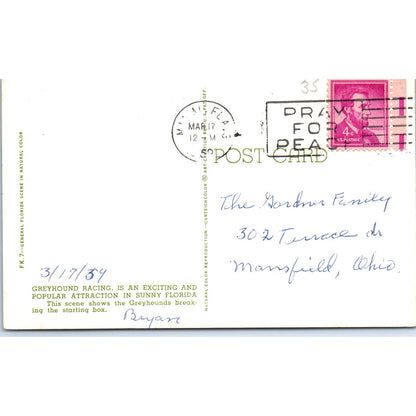 35
MIAMI, FLA.
MAR 17
12 M
PRAY
FOR
PEACE
4¢
U.S. POSTAGE
POST CARD
The Gardner Family
302 Terrace dr
Mansfield, Ohio.
FK.7—GENERAL FLORIDA SCENE IN NATURAL COLOR
NATURAL COLOR REPRODUCTION
3/17/59
GREYHOUND RACING, IS AN EXCITING AND
POPULAR ATTRACTION IN SUNNY FLORIDA
This scene shows the Greyhounds break-
ing the starting box.
Bryan